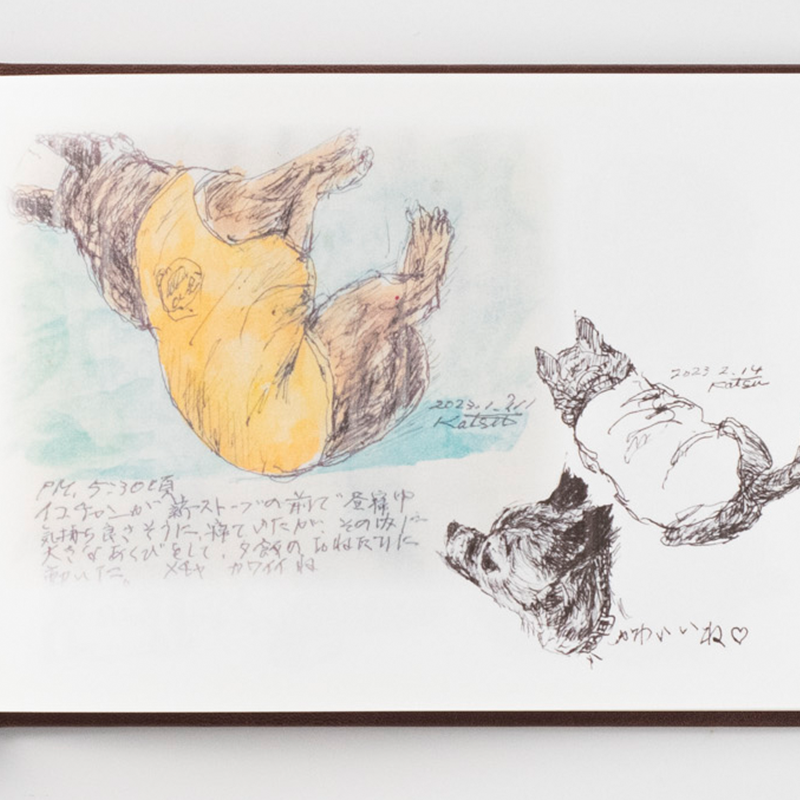 2023.1.21
Katsu
PM. 5:30頃
イコチャンが 薪ストーブの前で 昼寝中
気持ち良さそうに、寝ていたが、その内に
大きなあくびをして、夕飯の おねだりに
メチャ カワイイね
2023 2.14
Katsu
かわいいね♡